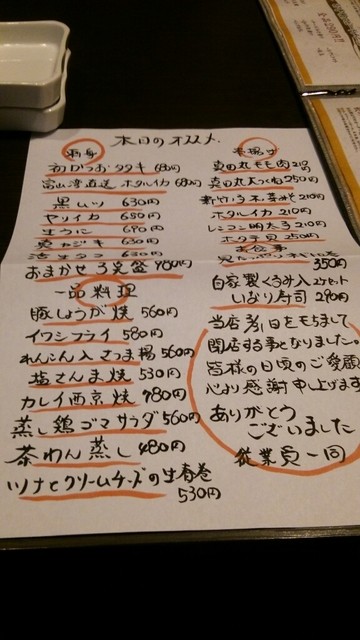 本日のオススメ
刺身
初かつおタタキ 680円
富山湾直送 ホタルイカ 680円
黒ムツ 630円
ヤリイカ 650円
生うに 690円
630円
活生タコ 630円
おまかせ3点盛 980円
一品料理
豚しょうが焼 560円
イワシフライ 580円
れんこん入さつま揚 560円
塩さんま焼 530円
カレイ西京焼 780円
蒸し鶏ゴマサラダ 560円
茶わん蒸し 480円
ツナとクリームチーズの生春巻
530円
串揚げ
真田丸もも肉 210円
真田丸大つくね 250円
210円
ホタルイカ 210円
レンコン明太子 210円
ホタテ貝 250円
お食事
350円
自家製くるみ入 2ケセット
いなり寿司 290円
当店 3/31日をもちまして
閉店する事となりました。
皆様の日頃のご愛顧
心より感謝申し上げます
ありがとう
ございました
従業員一同